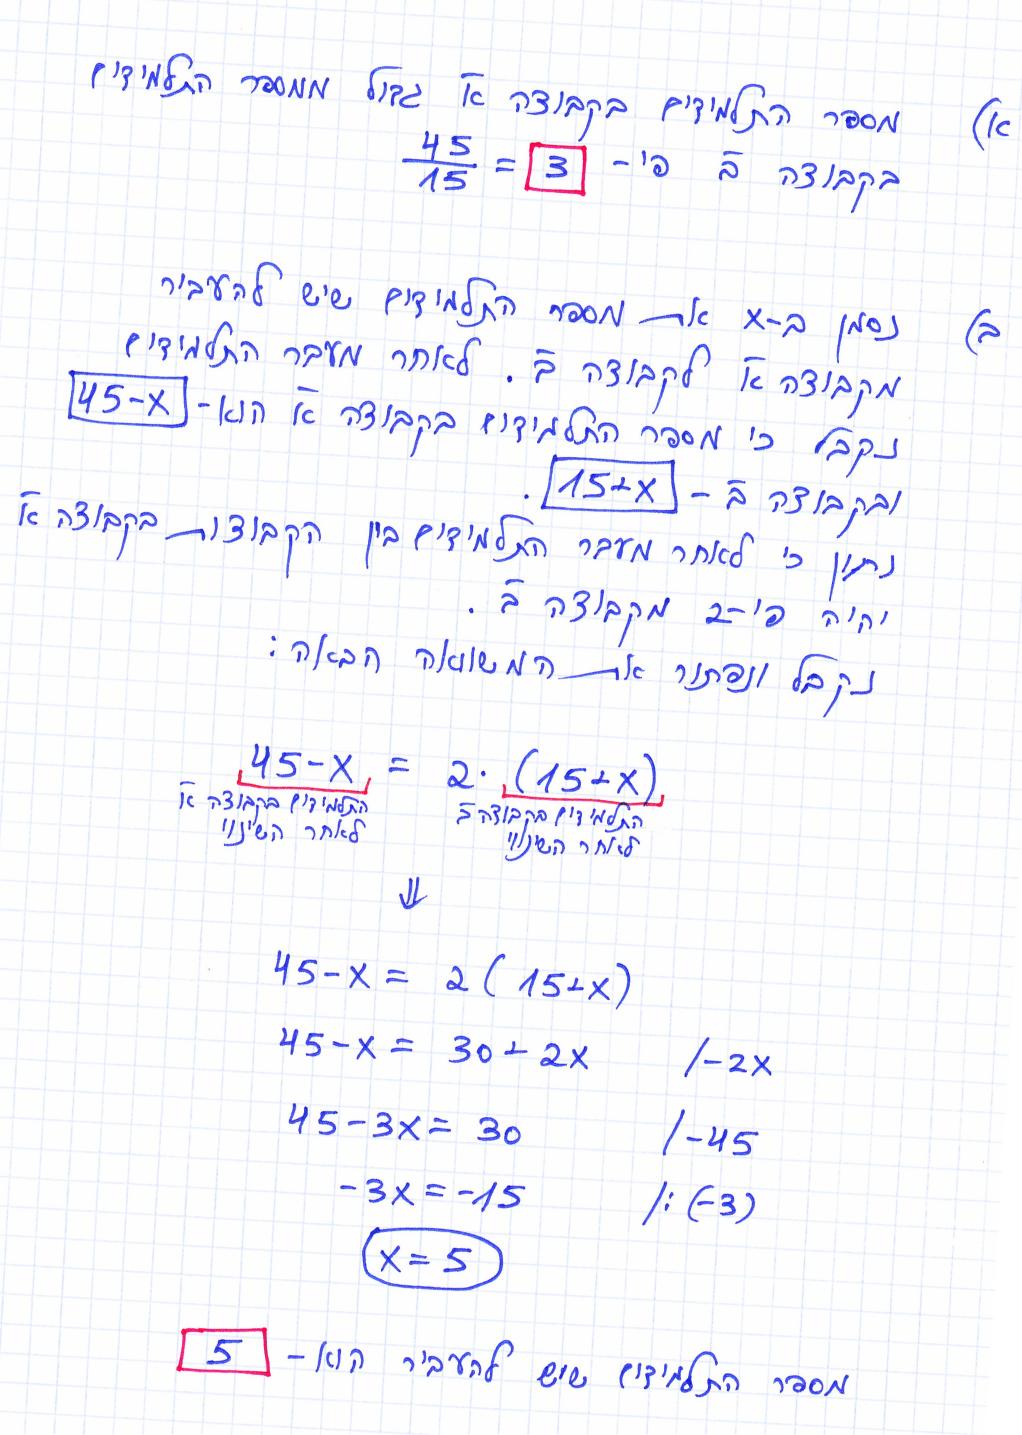 א) מספר התלמידים בקבוצה א גדול ממספר התלמידים
בקבוצה ב פי - 45/15 = 3
ב) נסמן ב-x את מספר התלמידים שיש להעביר
מקבוצה א לקבוצה ב. לאחר מעבר התלמידים
נקבל כי מספר התלמידים בקבוצה א הוא - 45-x
ובקבוצה ב - 15+x.
נתון כי לאחר מעבר התלמידים בין הקבוצות בקבוצה א
יהיה פי-2 מקבוצה ב.
נקבל ונפתור את המשוואה הבאה:
45-x = 2·(15+x)
התלמידים בקבוצה א התלמידים בקבוצה ב
לאחר השינוי לאחר השינוי
⇓
45-x = 2(15+x)
45-x = 30+2x /-2x
45-3x = 30 /-45
-3x = -15 /:(-3)
x = 5
מספר התלמידים שיש להעביר הוא - 5